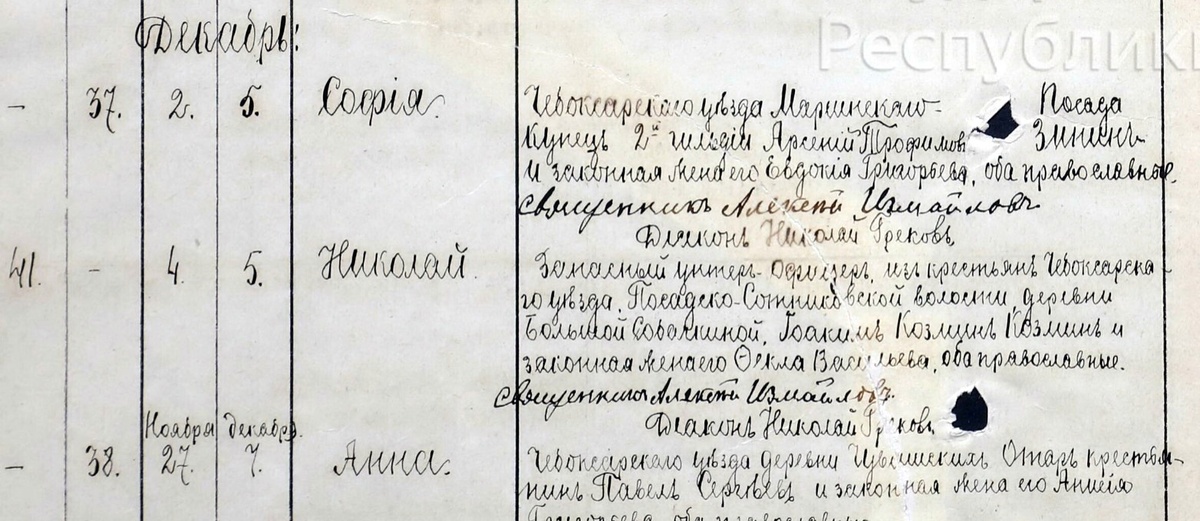 Республики
Декабрь:
— 37. 2. 5. Софія. Чебоксарскаго уѣзда Маріинскаго Посада
Купецъ 2й гильдіи Арсеній Трофимовъ Зининъ
и законная жена его Евдокія Григорьева, оба православные.
Священникъ Алексѣй Измайловъ
Діаконъ Николай Грековъ
41. - 4. 5. Николай. Запасный унтеръ-офицеръ, изъ крестьянъ Чебоксарска-
го уѣзда, Посадско-Сотниковской волости, деревни
Большой Собачкиной, Іоакимъ Козминъ Козминъ и
законная жена его Ѳекла Васильева, оба православные.
Священникъ Алексѣй Измайловъ
Діаконъ Николай Грековъ
Ноября Декабря.
— 38. 27. 7. Анна. Чебоксарскаго уѣзда деревни Отаръ крестья-
нинъ Павелъ Сергѣевъ и законная жена его Анисія
Григорьева, оба православные